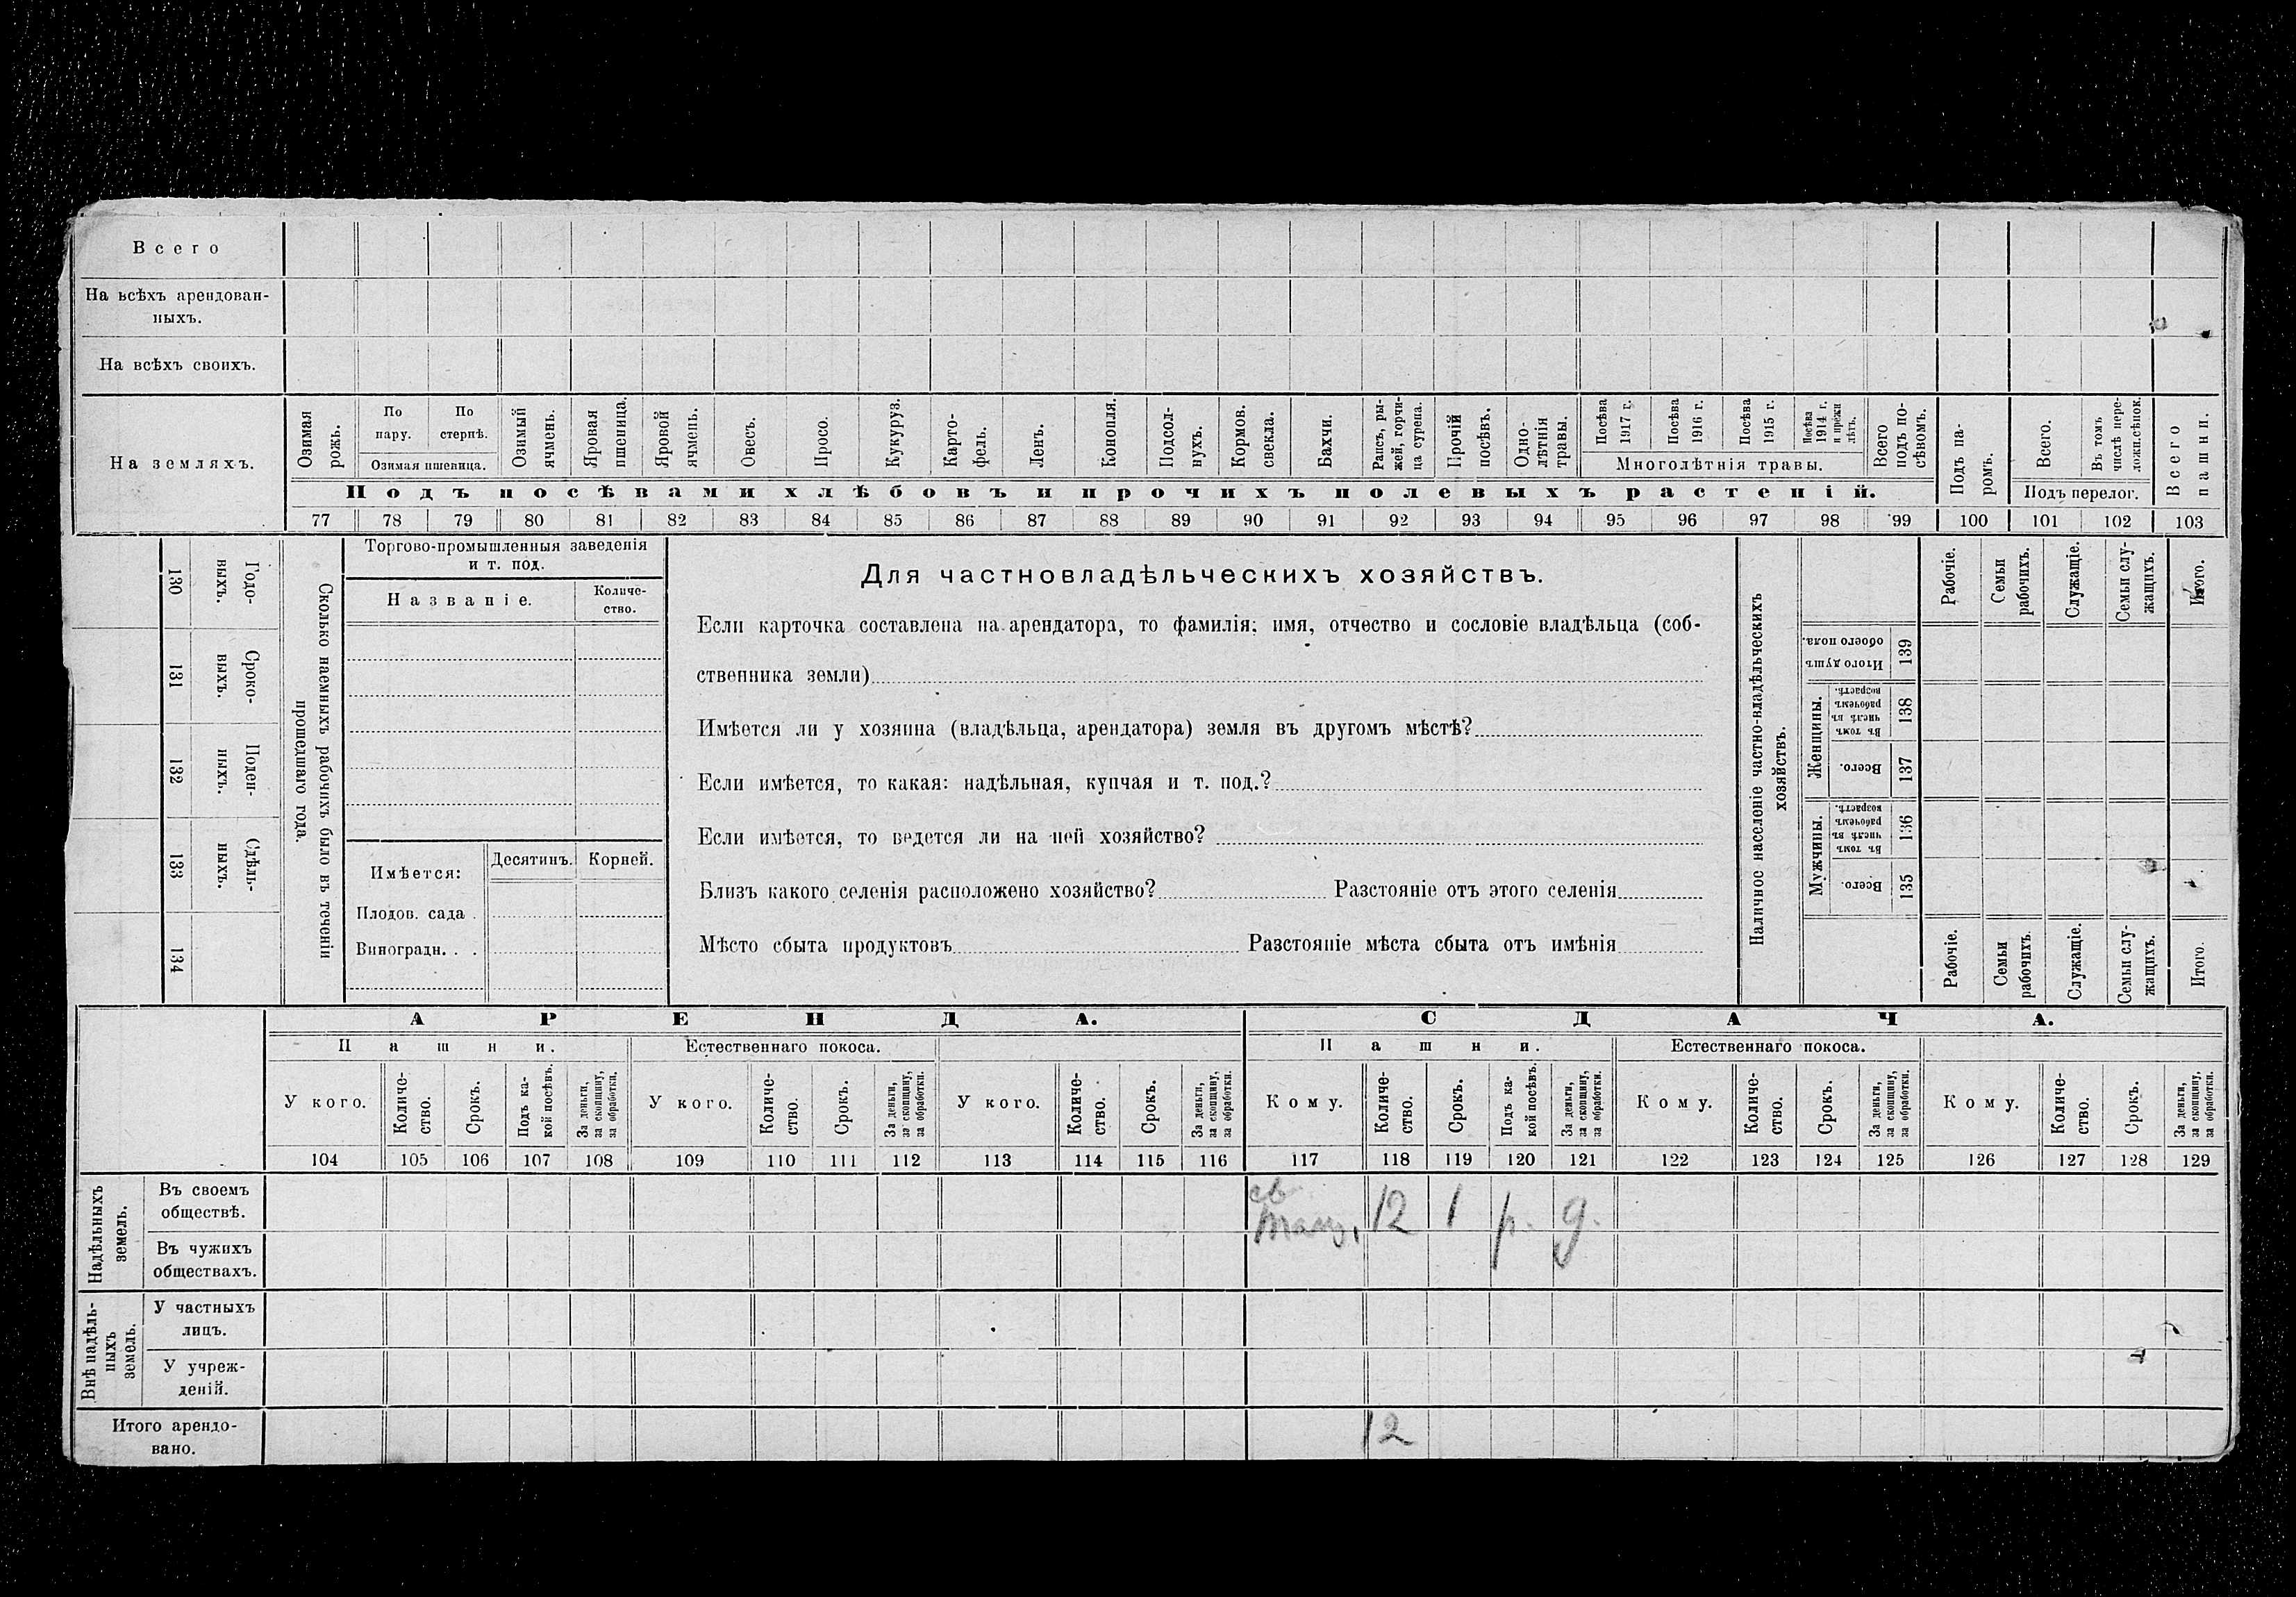 Всего
На всѣхъ арендован-
ныхъ.
На всѣхъ своихъ.
На земляхъ.
Озимая рожь.
По пару.
По стернѣ.
Озимая пшеница.
Озимый ячмень.
Яровая пшеница.
Яровой ячмень.
Овесъ.
Просо.
Кукуруз.
Карто-
фель.
Ленъ.
Конопля.
Подсол-
нухъ.
Кормов. свекла.
Бахчи.
Рапсъ, ры-
жей, горчи-
ца сурепа.
Прочій посѣвъ.
Одно-
лѣтнія травы.
Посѣва 1917 г.
Посѣва 1916 г.
Посѣва 1915 г.
Посѣва 1914 г. и прежн лѣтъ.
Многолѣтнія травы.
Всего подъ по-
сѣвомъ.
Подъ па-
ромъ.
Всего.
Въ томъ числѣ пере-
ложн.сѣнок.
Подъ перелог.
Всего пашни.
Подъ посѣвами хлѣбовъ и прочихъ полевыхъ растеній.
77 78 79 80 81 82 83 84 85 86 87 88 89 90 91 92 93 94 95 96 97 98 99 100 101 102 103
130 Годо-
выхъ.
131 Сроко-
выхъ.
132 Поден-
ныхъ.
133 Сдѣль-
ныхъ.
134
Сколько наемныхъ рабочихъ было въ теченіи
прошедшаго года.
Торгово-промышленныя заведенія
и т. под.
Названіе.
Количе-
ство.
Имѣется:
Десятинъ.
Корней.
Плодов. сада .
Виноградн. . .
Для частновладѣльческихъ хозяйствъ.
Если карточка составлена на арендатора, то фамилія; имя, отчество и сословіе владѣльца (соб-
ственника земли)
Имѣется ли у хозяина (владѣльца, арендатора) земля въ другомъ мѣстѣ?
Если имѣется, то какая: надѣльная, купчая и т. под.?
Если имѣется, то ведется ли на ней хозяйство?
Близъ какого селенія расположено хозяйство? Разстояніе отъ этого селенія
Мѣсто сбыта продуктовъ Разстояніе мѣста сбыта отъ имѣнія
Наличное населеніе частно-владѣльческихъ
хозяйствъ.
Рабочіе.
Семьи рабочихъ.
Служащіе.
Семьи слу-
жащихъ.
Итого.
Итого душъ обоего пола. 139
Женщины.
Въ томъ числѣ въ рабочемъ возрастѣ. 138
Всего. 137
Мужчины.
Въ томъ числѣ въ рабочемъ возрастѣ. 136
Всего. 135
Рабочіе.
Семьи рабочихъ.
Служащіе.
Семьи слу-
жащихъ.
Итого.
АРЕНДА.
СДАЧА.
Пашни.
Естественнаго покоса.
Пашни.
Естественнаго покоса.
У кого.
Количе-
ство.
Срокъ.
Подъ ка-
кой посѣвъ.
За деньги, за скопщину, за обработки.
У кого.
Количе-
ство.
Срокъ.
За деньги, за скопщину, за обработки.
У кого.
Количе-
ство.
Срокъ.
За деньги, за скопщину, за обработки.
Кому.
Количе-
ство.
Срокъ.
Подъ ка-
кой посѣвъ.
За деньги, за скопщину, за обработки.
Кому.
Количе-
ство.
Срокъ.
За деньги, за скопщину, за обработки.
Кому.
Количе-
ство.
Срокъ.
За деньги, за скопщину, за обработки.
104 105 106 107 108 109 110 111 112 113 114 115 116 117 118 119 120 121 122 123 124 125 126 127 128 129
Надѣльныхъ
земель.
Въ своемъ
обществѣ.
12 1 р. д.
Въ чужихъ
обществахъ.
Внѣ надѣль-
ныхъ
земель.
У частныхъ
лицъ.
У учреж-
деній.
Итого арендо-
вано.
12